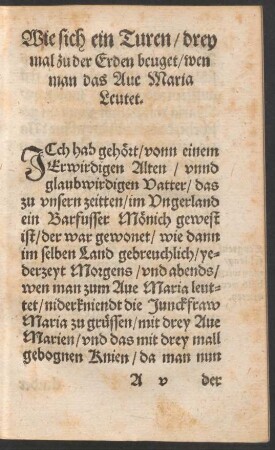 Wie sich ein Turen / drey
mal zu der Erden beuget / wen
man das Aue Maria
Leutet.
ICch hab gehört / vonn einem
Erwirdigen Alten / vnnd
glaubwirdigen Vatter / das
zu vnsern zeitten / im Vngerland
ein Barfusser Mönich gewest
ist / der war gewonet / wie dann
im selben Land gebreuchlich / ye-
derzeyt Morgens / vnd abends /
wen man zum Aue Maria leut-
tet / niderkniendt die Junckfraw
Maria zu grüssen / mit drey Aue
Marien / vnd das mit drey mall
gebognen Knien / da man nun
A v der